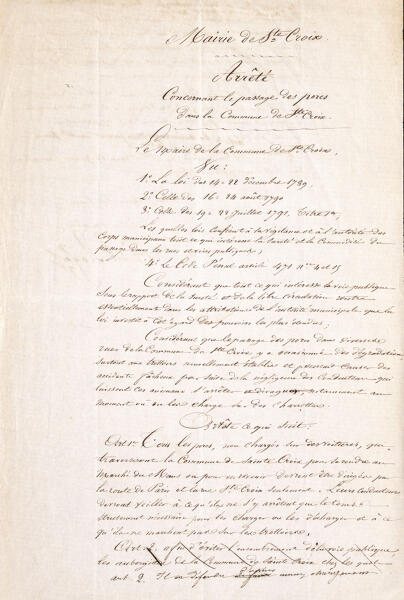 Mairie de Ste Croix.
Arrêté
Concernant le passage des porcs
dans la Commune de Ste Croix.
Le Maire de la Commune de Ste Croix,
Vu:
1° La loi des 14-22 Décembre 1789,
2° Celle des 16-24 août 1790
3° Celle des 19-22 Juillet 1791, titre 1er,
Lesquelles lois confient à la vigilance et à l'autorité des
corps municipaux tout ce qui intéresse la Santé et la Commodité du
passage dans les rues et voies publiques;
4° Le Code Pénal article 471 nos 4 et 15
Considérant que tout ce qui intéresse la voie publique
sous le rapport de la Santé et de la libre circulation rentre
essentiellement dans les attributions de l'autorité municipale que la
loi investit à cet égard des pouvoirs les plus étendus;
Considérant que le passage des porcs dans diverses
rues de la Commune de Ste Croix, y a occasionné des dégradations
surtout aux trottoirs nouvellement établis et peuvent causer des
accidents fâcheux par suite de la négligence des Conducteurs qui
laissent ces animaux s'arrêter et divaguer, notamment au
moment où on les charge sur des charrettes.
Arrête ce qui suit:
Art. 1er Tous les porcs, non chargés sur des voitures, qui
traverseront la Commune de Sainte Croix pour se rendre au
Marché du Mans ou pour en revenir devront être dirigés par
la route de Paris et la rue Ste Croix seulement. Leurs Conducteurs
devront veiller à ce qu'ils ne s'y arrêtent que le temps
strictement nécessaire pour les charger ou les décharger et à ce
qu'ils ne marchent pas sur les trottoirs.
Art. 2. afin d'éviter l'encombrement de la voie publique,
les aubergistes de la Commune de Sainte Croix chez lesquels
Art. 2. Il est défendu